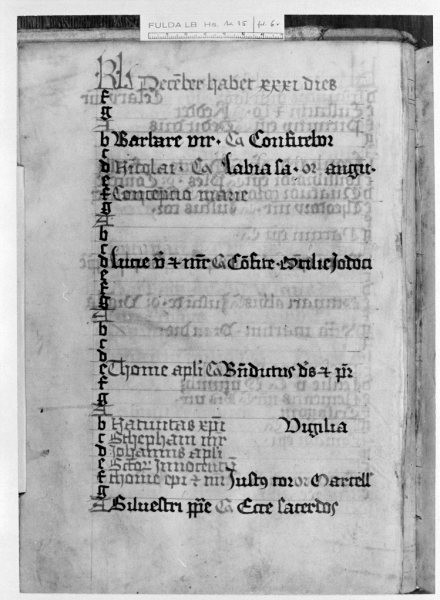 FULDA LB. Hs. Aa 35 fol. 6v
KL December habet xxxi dies
f
g
A
b Barbare vir · Ca Confitebor
c
d Nicolai · Ca Labia sa · or angu·
e
f Conceptio marie
g
A
b
c
d Lucie v̄ ⁊ mr̄ Ca Cōfite · Jodoci
e
f
g
A
b
c
d
e Thome apl̄i Ca Bn̄dictus dn̄s ⁊ pr̄
f
g
A
b Natiuitas xp̄i Vigilia
c Stephani mr̄
d Johannis apl̄i
e Sctor̄ Innocentū
f thome ep̄i ⁊ mr̄ Justꝰ cor or Marcell
g
A Siluestri pp̄e Ca Ecce sacerdos